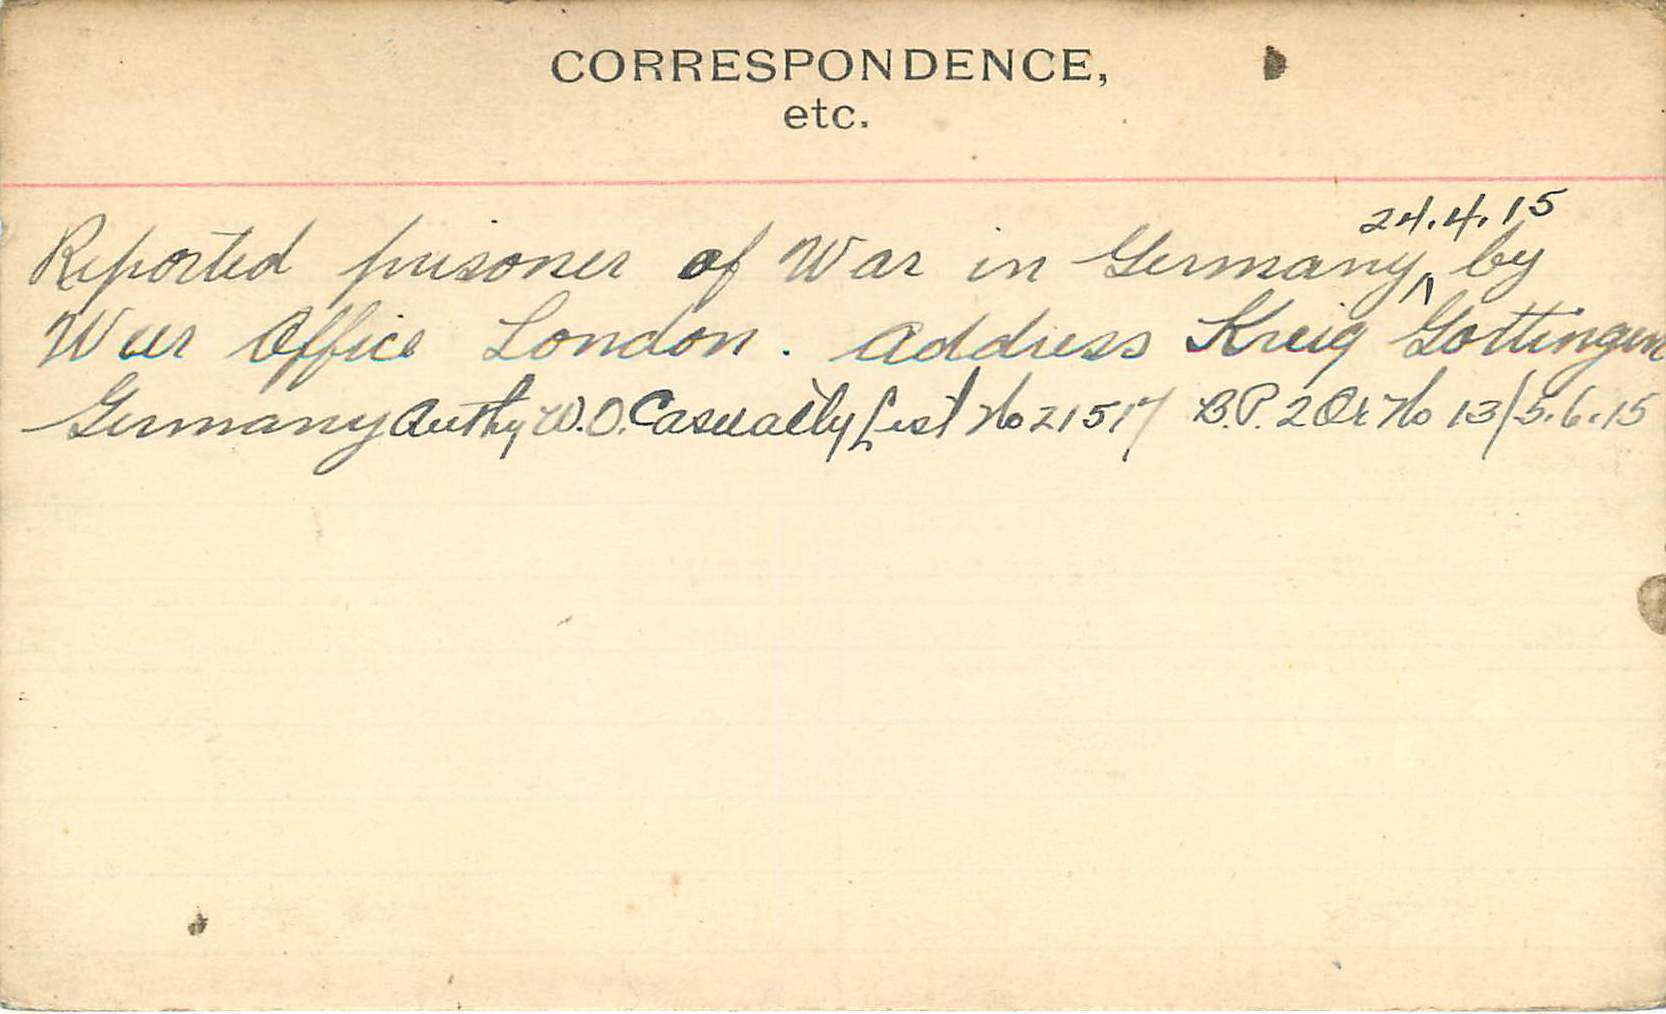 CORRESPONDENCE,
etc.
24.4.15
Reported prisoner of War in Germany ^ by
War Office London. Address Kreig Gottingen
Germany Authy W.O. Casualty List No 21517 B.P. 2 Or No 13/5.6.15